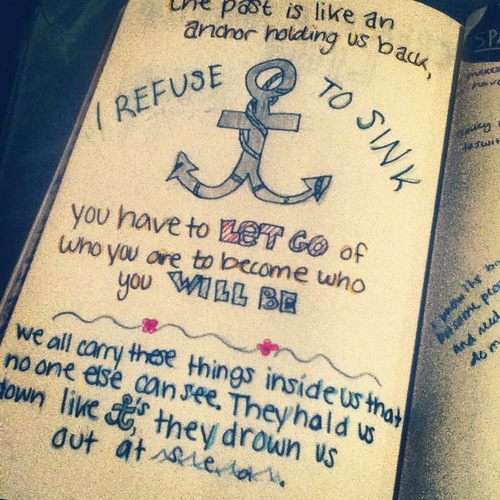 the past is like an
anchor holding us back,
I REFUSE TO SINK
you have to LET GO of
who you are to become who
you WILL BE
we all carry these things inside us that
no one else can see. They hold us
down like 's, they drown us
out at
SP
makes
have
and need